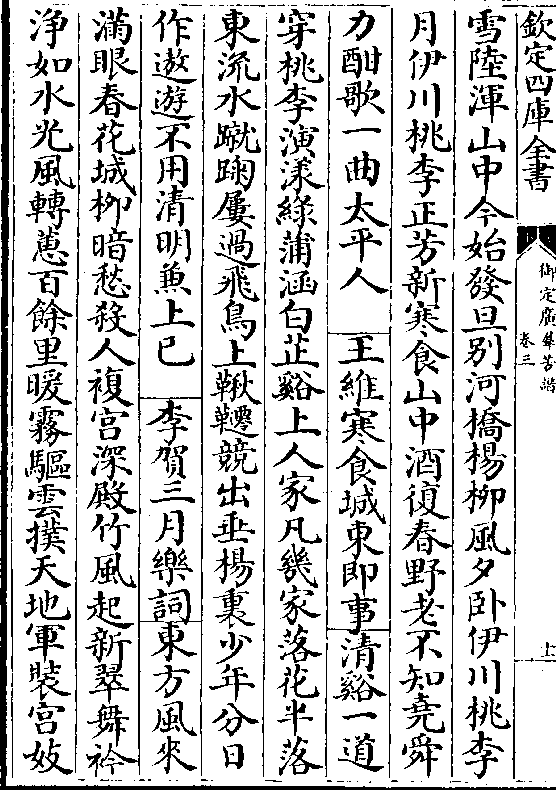 欽定四庫全書
御定廣羣芳譜
卷三
十一
雪陸渾山中今始發旦别河橋楊柳風夕卧伊川桃李
月伊川桃李正芳新寒食山中酒復春野老不知堯舜
力酣歌一曲太平人 王維寒食城東即事 清谿一道
穿桃李演漾綠蒲涵白芷谿上人家凡幾家落花半落
東流水蹴踘屢過飛鳥上鞦韆競出垂楊裏少年分日
作遨遊不用清明兼上巳 李賀三月樂詞 東方風來
滿眼春花城柳暗愁殺人複宫深殿竹風起新翠舞衿
浄如水光風轉蕙百餘里暖霧驅雲撲天地軍裝宫妓